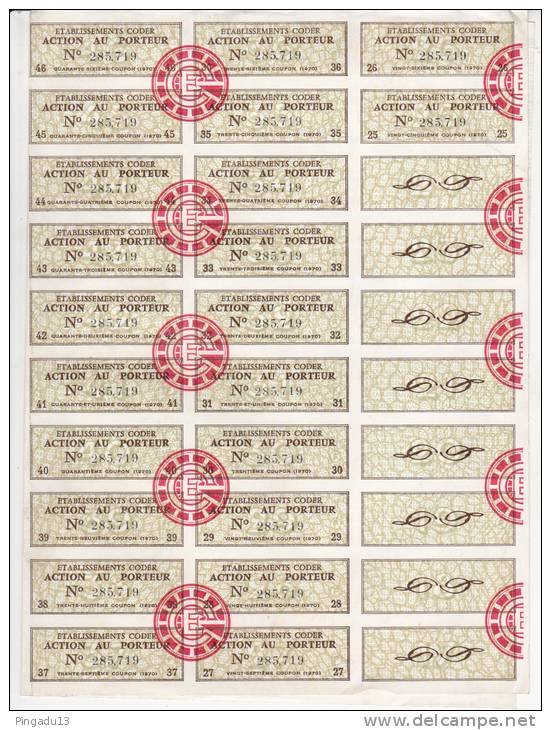 ETABLISSEMENTS CODER
ACTION AU PORTEUR
Nº 285,719
46 QUARANTE-SIXIÈME COUPON (1970)
ETABLISSEMENTS CODER
ACTION AU PORTEUR
Nº 285,719
TRENTE-SIXIÈME COUPON (1970) 36
ETABLISSEMENTS CODER
ACTION AU PORTEUR
Nº 285,719
26 VINGT-SIXIÈME COUPON (1970)
ETABLISSEMENTS CODER
ACTION AU PORTEUR
Nº 285,719
45 QUARANTE-CINQUIÈME COUPON (1970) 45
ETABLISSEMENTS CODER
ACTION AU PORTEUR
Nº 285,719
35 TRENTE-CINQUIÈME COUPON (1970) 35
ETABLISSEMENTS CODER
ACTION AU PORTEUR
Nº 285,719
25 VINGT-CINQUIÈME COUPON (1970) 25
ETABLISSEMENTS CODER
ACTION AU PORTEUR
Nº 285,719
44 QUARANTE-QUATRIÈME COUPON (1970) 44
ETABLISSEMENTS CODER
ACTION AU PORTEUR
Nº 285,719
TRENTE-QUATRIÈME COUPON (1970) 34
ETABLISSEMENTS CODER
ACTION AU PORTEUR
Nº 285,719
43 QUARANTE-TROISIÈME COUPON (1970) 43
ETABLISSEMENTS CODER
ACTION AU PORTEUR
Nº 285,719
33 TRENTE-TROISIÈME COUPON (1970) 33
ETABLISSEMENTS CODER
ACTION AU PORTEUR
Nº 285,719
42 QUARANTE-DEUXIÈME COUPON (1970) 42
ETABLISSEMENTS CODER
ACTION AU PORTEUR
Nº 285,719
32 TRENTE-DEUXIÈME COUPON (1970) 32
ETABLISSEMENTS CODER
ACTION AU PORTEUR
Nº 285,719
41 QUARANTE-ET-UNIÈME COUPON (1970) 41
ETABLISSEMENTS CODER
ACTION AU PORTEUR
Nº 285,719
31 TRENTE-ET-UNIÈME COUPON (1970) 31
ETABLISSEMENTS CODER
ACTION AU PORTEUR
Nº 285,719
40 QUARANTIÈME COUPON (1970) 40
ETABLISSEMENTS CODER
ACTION AU PORTEUR
Nº 285,719
30 TRENTIÈME COUPON (1970) 30
ETABLISSEMENTS CODER
ACTION AU PORTEUR
Nº 285,719
39 TRENTE-NEUVIÈME COUPON (1970) 39
ETABLISSEMENTS CODER
ACTION AU PORTEUR
Nº 285,719
29 VINGT-NEUVIÈME COUPON (1970) 29
ETABLISSEMENTS CODER
ACTION AU PORTEUR
Nº 285,719
38 TRENTE-HUITIÈME COUPON (1970)
ETABLISSEMENTS CODER
ACTION AU PORTEUR
Nº 285,719
28 VINGT-HUITIÈME COUPON (1970) 28
ETABLISSEMENTS CODER
ACTION AU PORTEUR
Nº 285,719
37 TRENTE-SEPTIÈME COUPON (1970) 37
ETABLISSEMENTS CODER
ACTION AU PORTEUR
Nº 285,719
27 VINGT-SEPTIÈME COUPON (1970) 27
Pingadu13
delcampe.net